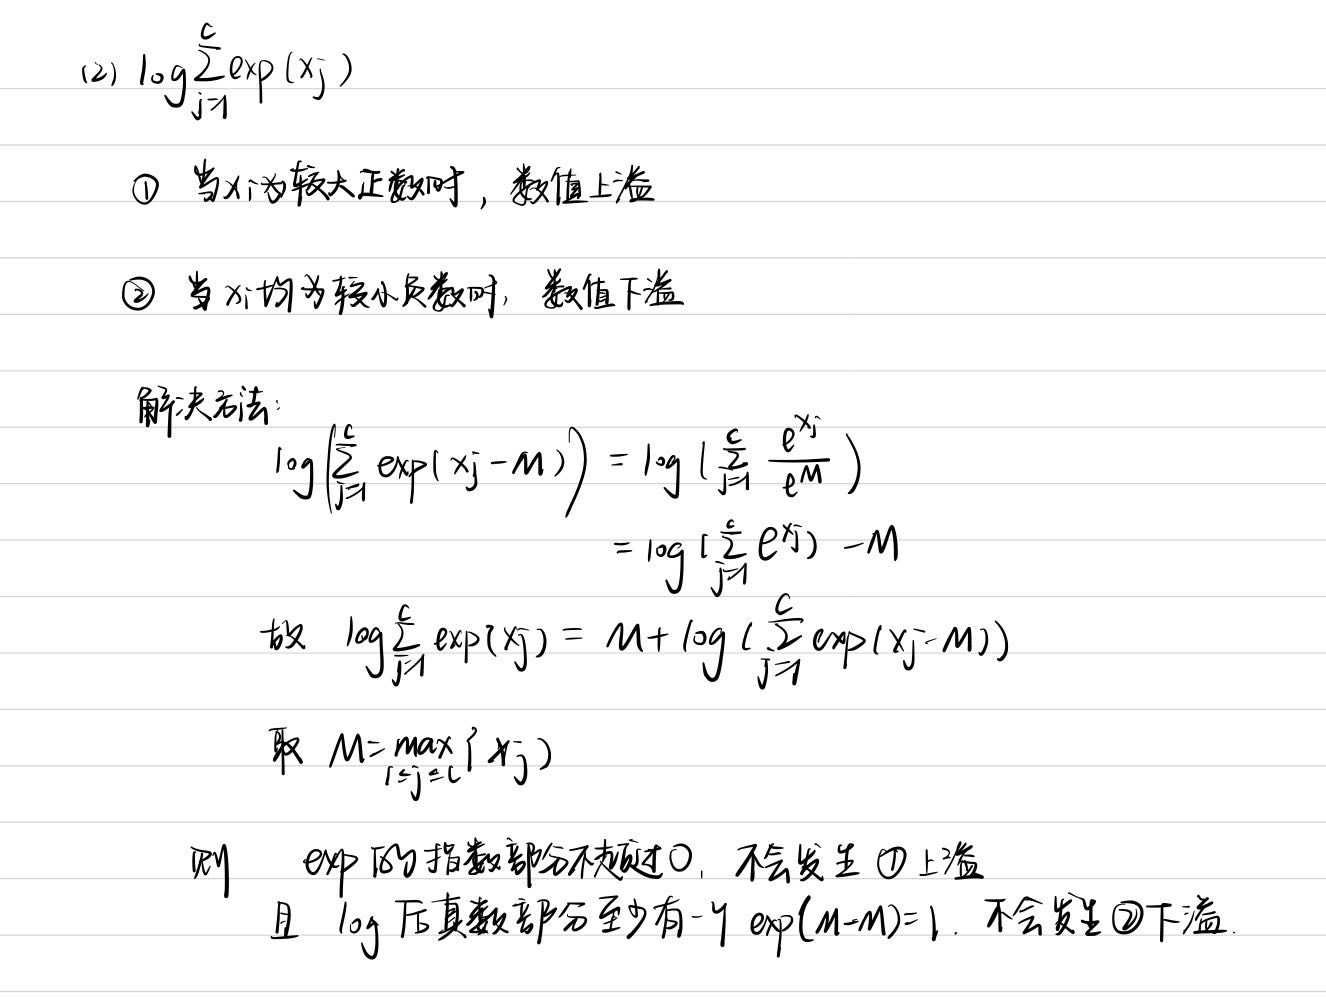 (2) log∑_{j=1}^{C} exp(x_j)
① 当x_i为较大正数时，数值上溢
② 当x_i均为较小负数时，数值下溢
解决方法：
log(∑_{j=1}^{C} exp(x_j-M)) = log(∑_{j=1}^{C} e^{x_j}/e^{M})
= log(∑_{j=1}^{C} e^{x_j}) - M
故 log∑_{j=1}^{C} exp(x_j) = M + log(∑_{j=1}^{C} exp(x_j-M))
取 M = max_{1≤j≤C}{x_j}
则 exp的指数部分不超过0，不会发生①上溢
且 log后真数部分至少有一个 exp(M-M)=1. 不会发生②下溢.